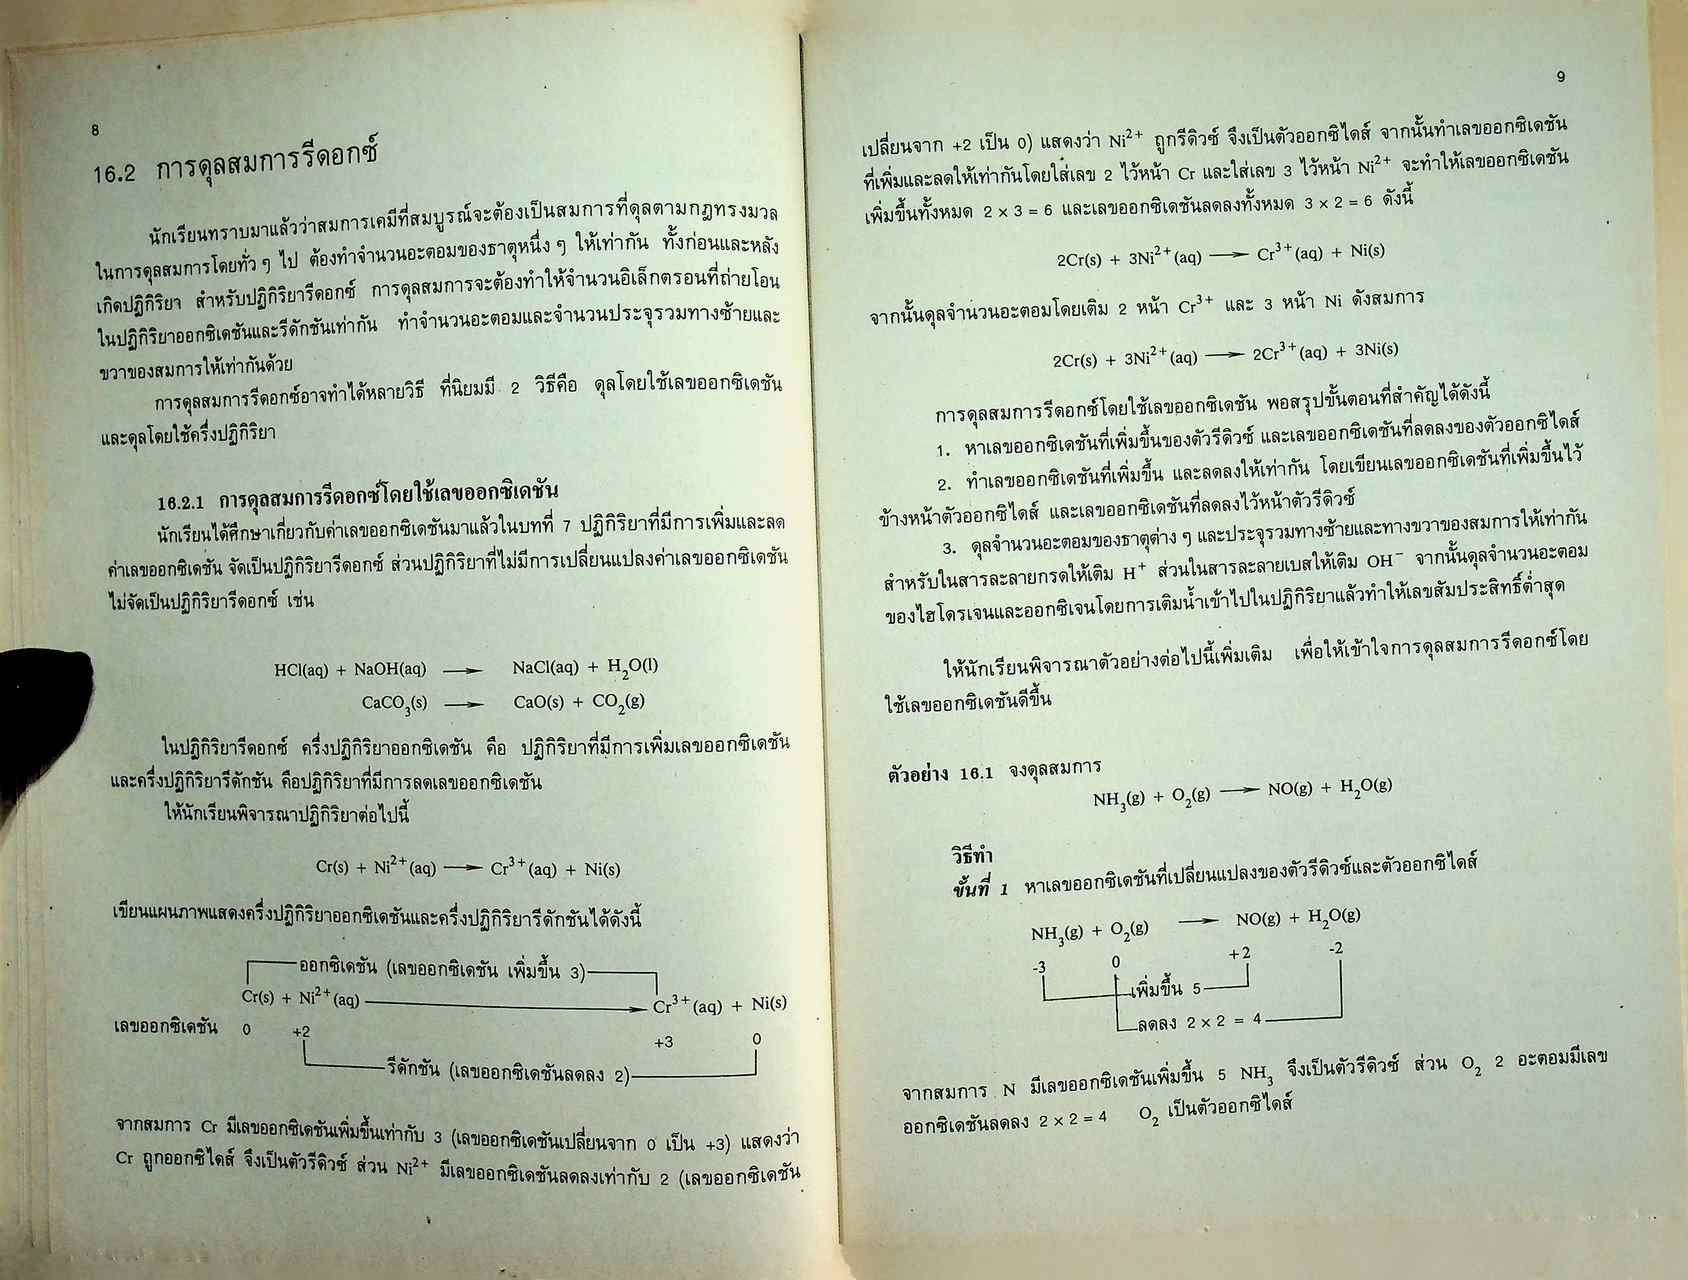 8
16.2 การดุลสมการรีดอกซ์
นักเรียนทราบมาแล้วว่าสมการเคมีที่สมบูรณ์จะต้องเป็นสมการที่ดุลตามกฎทรงมวล
ในการดุลสมการโดยทั่ว ๆ ไป ต้องทำจำนวนอะตอมของธาตุหนึ่ง ๆ ให้เท่ากัน ทั้งก่อนและหลัง
เกิดปฏิกิริยา สำหรับปฏิกิริยารีดอกซ์ การดุลสมการจะต้องทำให้จำนวนอิเล็กตรอนที่ถ่ายโอน
ในปฏิกิริยาออกซิเดชันและรีดักชันเท่ากัน ทำจำนวนอะตอมและจำนวนประจุรวมทางซ้ายและ
ขวาของสมการให้เท่ากันด้วย
การดุลสมการรีดอกซ์อาจทำได้หลายวิธี ที่นิยมมี 2 วิธีคือ ดุลโดยใช้เลขออกซิเดชัน
และดุลโดยใช้ครึ่งปฏิกิริยา
16.2.1 การดุลสมการรีดอกซ์โดยใช้เลขออกซิเดชัน
นักเรียนได้ศึกษาเกี่ยวกับค่าเลขออกซิเดชันมาแล้วในบทที่ 7 ปฏิกิริยาที่มีการเพิ่มและลด
ค่าเลขออกซิเดชัน จัดเป็นปฏิกิริยารีดอกซ์ ส่วนปฏิกิริยาที่ไม่มีการเปลี่ยนแปลงค่าเลขออกซิเดชัน
ไม่จัดเป็นปฏิกิริยารีดอกซ์ เช่น
HCl(aq) + NaOH(aq) ⟶ NaCl(aq) + H₂O(l)
CaCO₃(s) ⟶ CaO(s) + CO₂(g)
ในปฏิกิริยารีดอกซ์ ครึ่งปฏิกิริยาออกซิเดชัน คือ ปฏิกิริยาที่มีการเพิ่มเลขออกซิเดชัน
และครึ่งปฏิกิริยารีดักชัน คือปฏิกิริยาที่มีการลดเลขออกซิเดชัน
ให้นักเรียนพิจารณาปฏิกิริยาต่อไปนี้
Cr(s) + Ni²⁺(aq) ⟶ Cr³⁺(aq) + Ni(s)
เขียนแผนภาพแสดงครึ่งปฏิกิริยาออกซิเดชันและครึ่งปฏิกิริยารีดักชันได้ดังนี้
ออกซิเดชัน (เลขออกซิเดชัน เพิ่มขึ้น 3)
Cr(s) + Ni²⁺(aq) ⟶ Cr³⁺(aq) + Ni(s)
เลขออกซิเดชัน 0 +2 +3 0
รีดักชัน (เลขออกซิเดชันลดลง 2)
จากสมการ Cr มีเลขออกซิเดชันเพิ่มขึ้นเท่ากับ 3 (เลขออกซิเดชันเปลี่ยนจาก 0 เป็น +3) แสดงว่า
Cr ถูกออกซิไดส์ จึงเป็นตัวรีดิวซ์ ส่วน Ni²⁺ มีเลขออกซิเดชันลดลงเท่ากับ 2 (เลขออกซิเดชัน
9
เปลี่ยนจาก +2 เป็น 0) แสดงว่า Ni²⁺ ถูกรีดิวซ์ จึงเป็นตัวออกซิไดส์ จากนั้นทำเลขออกซิเดชัน
ที่เพิ่มและลดให้เท่ากันโดยใส่เลข 2 ไว้หน้า Cr และใส่เลข 3 ไว้หน้า Ni²⁺ จะทำให้เลขออกซิเดชัน
เพิ่มขึ้นทั้งหมด 2 × 3 = 6 และเลขออกซิเดชันลดลงทั้งหมด 3 × 2 = 6 ดังนี้
2Cr(s) + 3Ni²⁺(aq) ⟶ Cr³⁺(aq) + Ni(s)
จากนั้นดุลจำนวนอะตอมโดยเติม 2 หน้า Cr³⁺ และ 3 หน้า Ni ดังสมการ
2Cr(s) + 3Ni²⁺(aq) ⟶ 2Cr³⁺(aq) + 3Ni(s)
การดุลสมการรีดอกซ์โดยใช้เลขออกซิเดชัน พอสรุปขั้นตอนที่สำคัญได้ดังนี้
1. หาเลขออกซิเดชันที่เพิ่มขึ้นของตัวรีดิวซ์ และเลขออกซิเดชันที่ลดลงของตัวออกซิไดส์
2. ทำเลขออกซิเดชันที่เพิ่มขึ้น และลดลงให้เท่ากัน โดยเขียนเลขออกซิเดชันที่เพิ่มขึ้นไว้
ข้างหน้าตัวออกซิไดส์ และเลขออกซิเดชันที่ลดลงไว้หน้าตัวรีดิวซ์
3. ดุลจำนวนอะตอมของธาตุต่าง ๆ และประจุรวมทางซ้ายและทางขวาของสมการให้เท่ากัน
สำหรับในสารละลายกรดให้เติม H⁺ ส่วนในสารละลายเบสให้เติม OH⁻ จากนั้นดุลจำนวนอะตอม
ของไฮโดรเจนและออกซิเจนโดยการเติมน้ำเข้าไปในปฏิกิริยาแล้วทำให้เลขสัมประสิทธิ์ต่ำสุด
ให้นักเรียนพิจารณาตัวอย่างต่อไปนี้เพิ่มเติม เพื่อให้เข้าใจการดุลสมการรีดอกซ์โดย
ใช้เลขออกซิเดชันดีขึ้น
ตัวอย่าง 16.1 จงดุลสมการ
NH₃(g) + O₂(g) ⟶ NO(g) + H₂O(g)
วิธีทำ
ขั้นที่ 1 หาเลขออกซิเดชันที่เปลี่ยนแปลงของตัวรีดิวซ์และตัวออกซิไดส์
NH₃(g) + O₂(g) ⟶ NO(g) + H₂O(g)
-3 0 +2 -2
เพิ่มขึ้น 5
ลดลง 2 × 2 = 4
จากสมการ N มีเลขออกซิเดชันเพิ่มขึ้น 5 NH₃ จึงเป็นตัวรีดิวซ์ ส่วน O₂ 2 อะตอมมีเลข
ออกซิเดชันลดลง 2 × 2 = 4 O₂ เป็นตัวออกซิไดส์